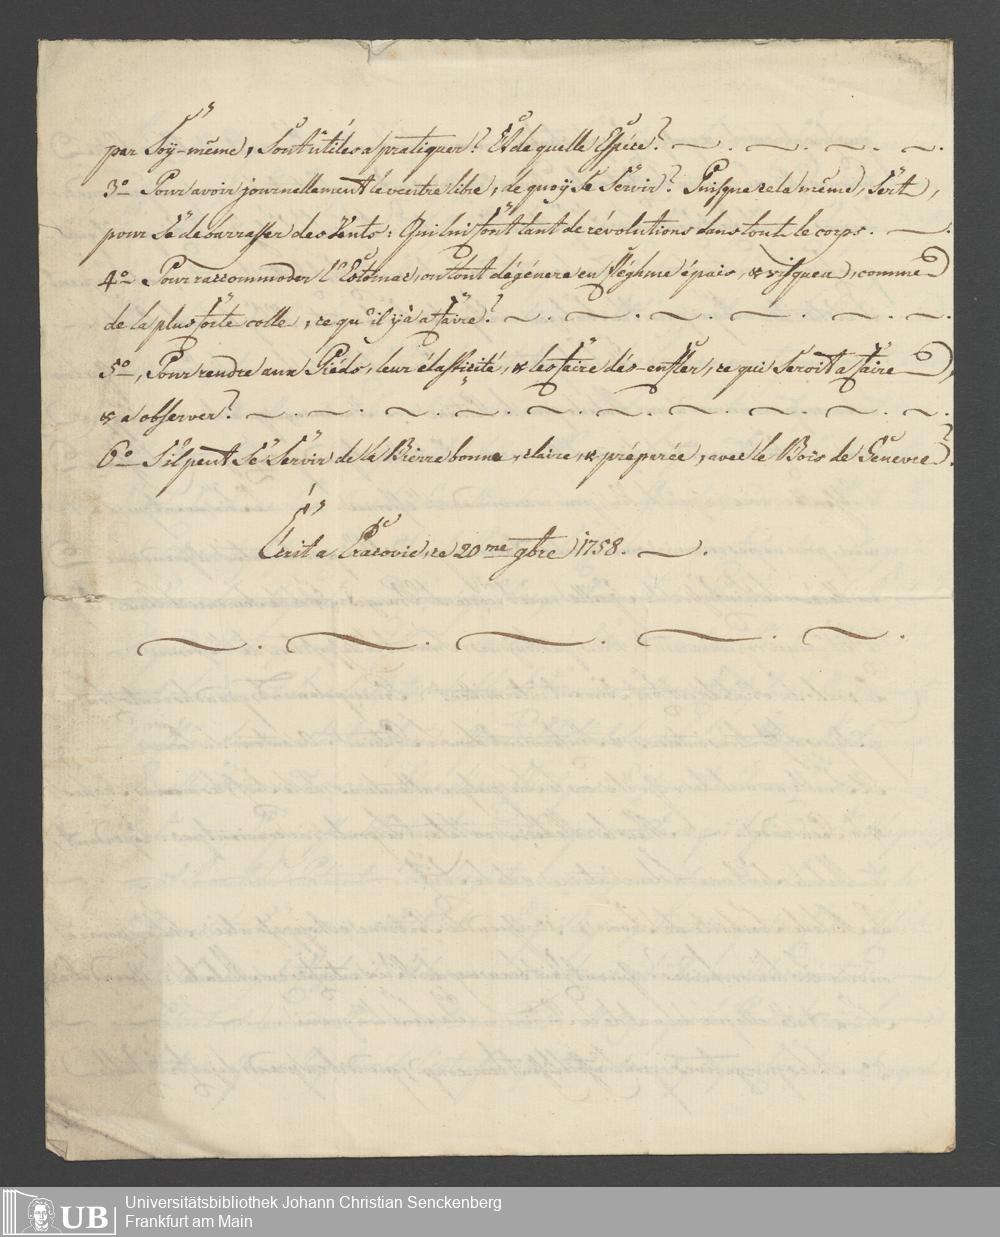 par Soÿ-même, Sont utiles a pratiquer? Et de quelle Espéce?
3º Pour avoir journellement le ventre libre, de quoÿ Se Servir? Puisque cela même, Sert,
pour Se débarrasser des Vents. Qui lui font tant de révolutions dans tout le corps.
4º Pour raccommoder l'Estomac, ou tout dégénere en fléghme épais, & visqueu, comme
de la plus forte colle, ce qu'il ÿ à a faire?
5º, Pour rendre aux Piéds, leur élasticité, & les faire dés-enfler, ce qui Seroit a faire,
& a observer?
6º S'il peut Se Servir de la Bierre bonne, claire, & préparée, avec le Bois de Genevre?
Écrit a Cracovie, ce 20me 9bre 1758.
Universitätsbibliothek Johann Christian Senckenberg
Frankfurt am Main
UB